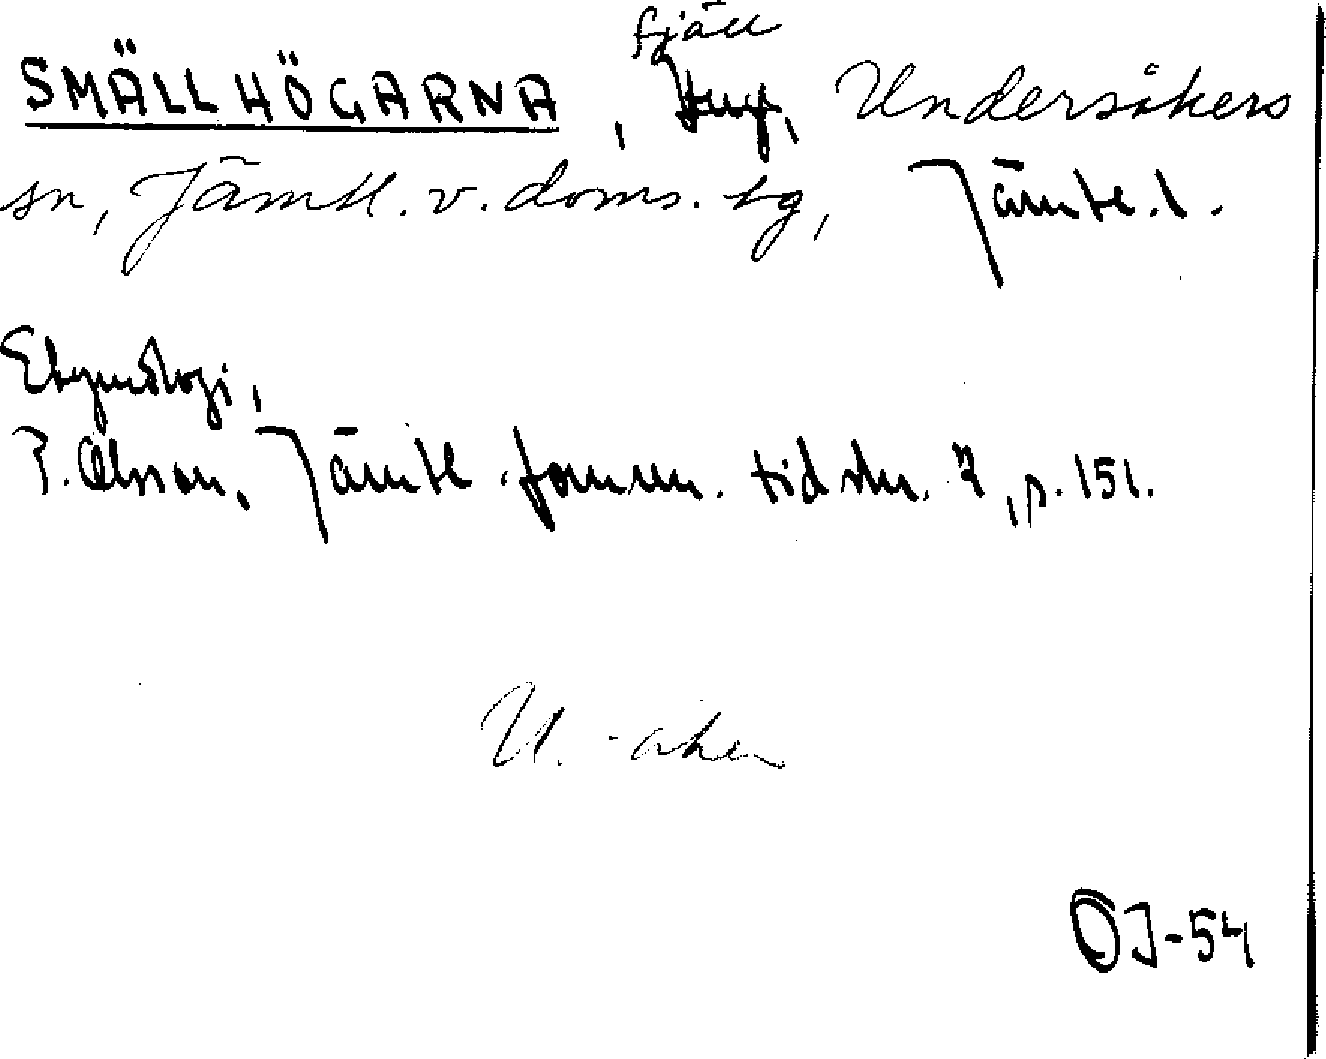 fjäll
SMÄLLHÖGARNA, Undersåkers
sn, Jämtl. v. doms. tg, Jämtl. l.
Etymologi,
P. Olsson, Jämtl. fornm. tidskr. 7, p. 151.
U. -åker
ÖJ-54